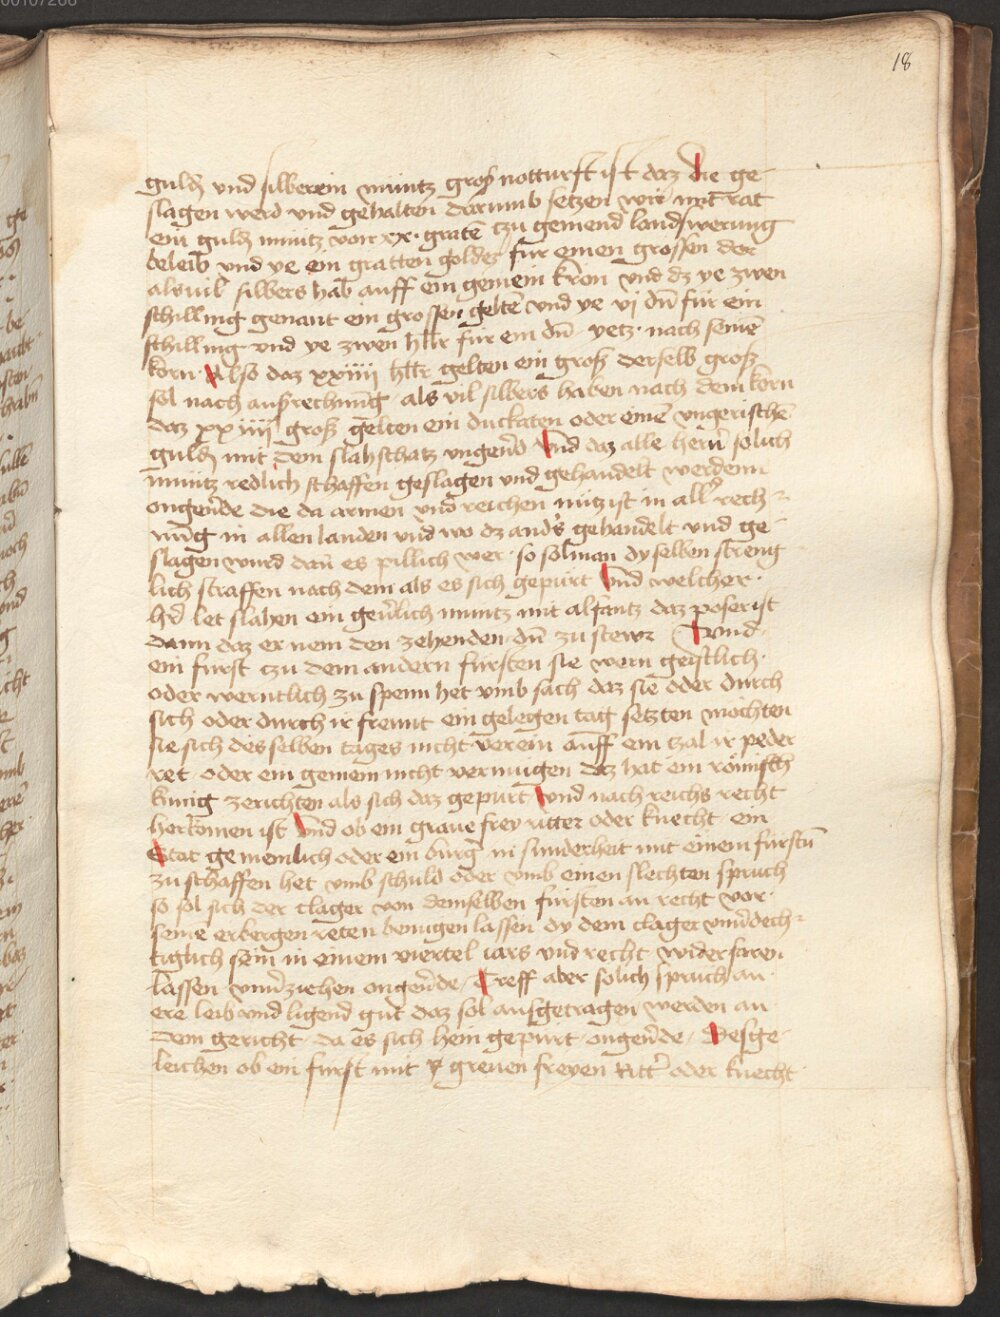 18
guld' und silberein müntz groß notturft ist daz die ge-
slagen werd und gehalten darumb setzen wir mit rat
ein guld' müntz von xx · graten czu gemeind landswerung
beleib und ye ein gratten goldes für einen grossen der
alsuil silbers hab auff ein gemein korn vnd dz ye zwen
schilling genant ein grossen gelten vnd ye vj dn̄ für ein
schilling vnd ye zwen hllr für ein dn̄ yetz · nach seinē
korn · Also daz xxiiij hllr gelten ein groß derselb groß
sol nach ausrechnūg als vil silbers haben nach dem korn
daz xxiiij groß gelten ein duckaten oder einē vngerischē
guld' mit dem slahschatz vngeu'd Vnd daz alle hern solich
müntz redlich schaffen geslagen und gehandelt werdenn
ongeu'de die da armen vnd reichen nütz ist in all' rech-
nūg in allen landen vnd wo dz and's gehandelt vnd ge-
slagen wurd dan̄ es pillich wer · so sol man dy selben streng
lich straffen nach dem als es sich gepürt Vnd welcher ·
h'r let slahen ein geu'lich müntz mit alfantz daz poser ist
dann daz er nem den zehenden dn̄ zu stewr Vnd
ein furst czu dem andern fürsten sie wern geistlich ·
oder werntlich zu spenn het vmb sach daz sie oder durch
sich oder durch ir freunt ein gelegen tag setzten mochten
sie sich desselben tages nicht verein auff ein czal ir peder
ret oder ein gemein nicht vermügen daz hat ein römisch
kunig zerichten als sich daz gepürt Vnd nach reichs recht
herkomen ist Vnd ob ein graue frey ritter oder knecht ein
Stat gemeinlich oder ein burg' in sunderheit mit einem fürstn̄
zu schaffen het vmb schuld oder vmb einen slechten spruch
so sol sich der clager von demselben fürsten an recht vor
seine erbergen reten benügen lassen dy dem clager vnu'dech-
tiglich sein in einem viertel iars vnd recht widerfaren
lassen vnu'ziehen ongeu'de Treff aber solich spruch an
ere leib vnd ligend gut daz sol ausgetragen werden an
dem gericht da es sich hein gepürt ongeu'de · Desge-
leichen ob ein furst mit greuen freyen Ritt' oder knecht